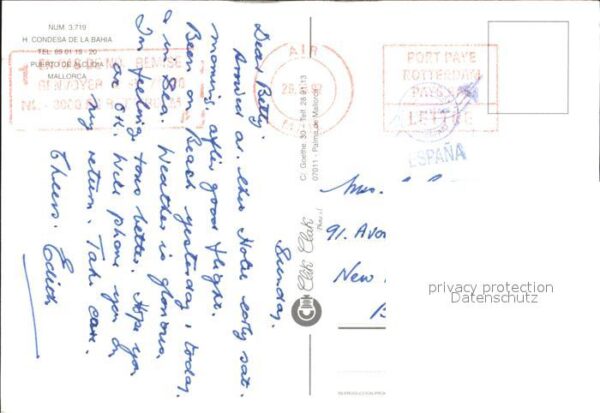 NUM. 3.719
H. CONDESA DE LA BAHIA
TEL. 89.01.19 - 20
PUERTO DE ALCUDIA
MALLORCA
Sunday.
Dear Betty,
Arrived at this Hotel early sat.
morning after good flight.
Been on Beach yesterday & today.
in Sea. Weather is glorious.
I'm feeling tons better. Hope you
are O.K. Will phone you on
my return. Take care.
Cheers. Edith
C/. Goethe, 30 - Telf. 28.91.13
07011 - Palma de Mallorca
Clik Clak
AIR
MAIL
PORT PAYE
ROTTERDAM
PAYS BAS
LETTRE
ESPAÑA
Mrs.
91. Avon
New
privacy protection
Datenschutz